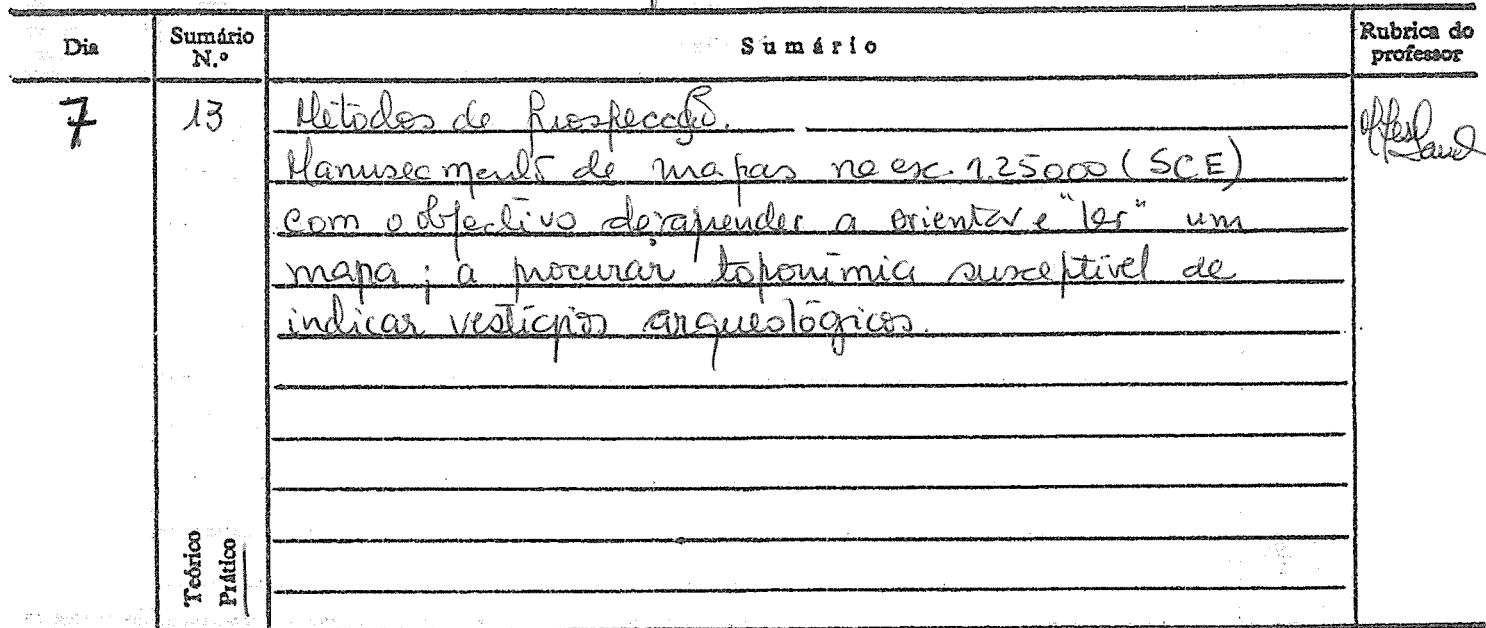 Dia Sumário N.º Sumário Rubrica do professor
7 13 Métodos de prospecção.
Manuseamento de mapas na esc. 1.25000 (SCE)
com o objectivo de aprender a orientar e "ler" um
mapa; a procurar toponímia susceptível de
indicar vestígios arqueológicos.
Teórico
Prático